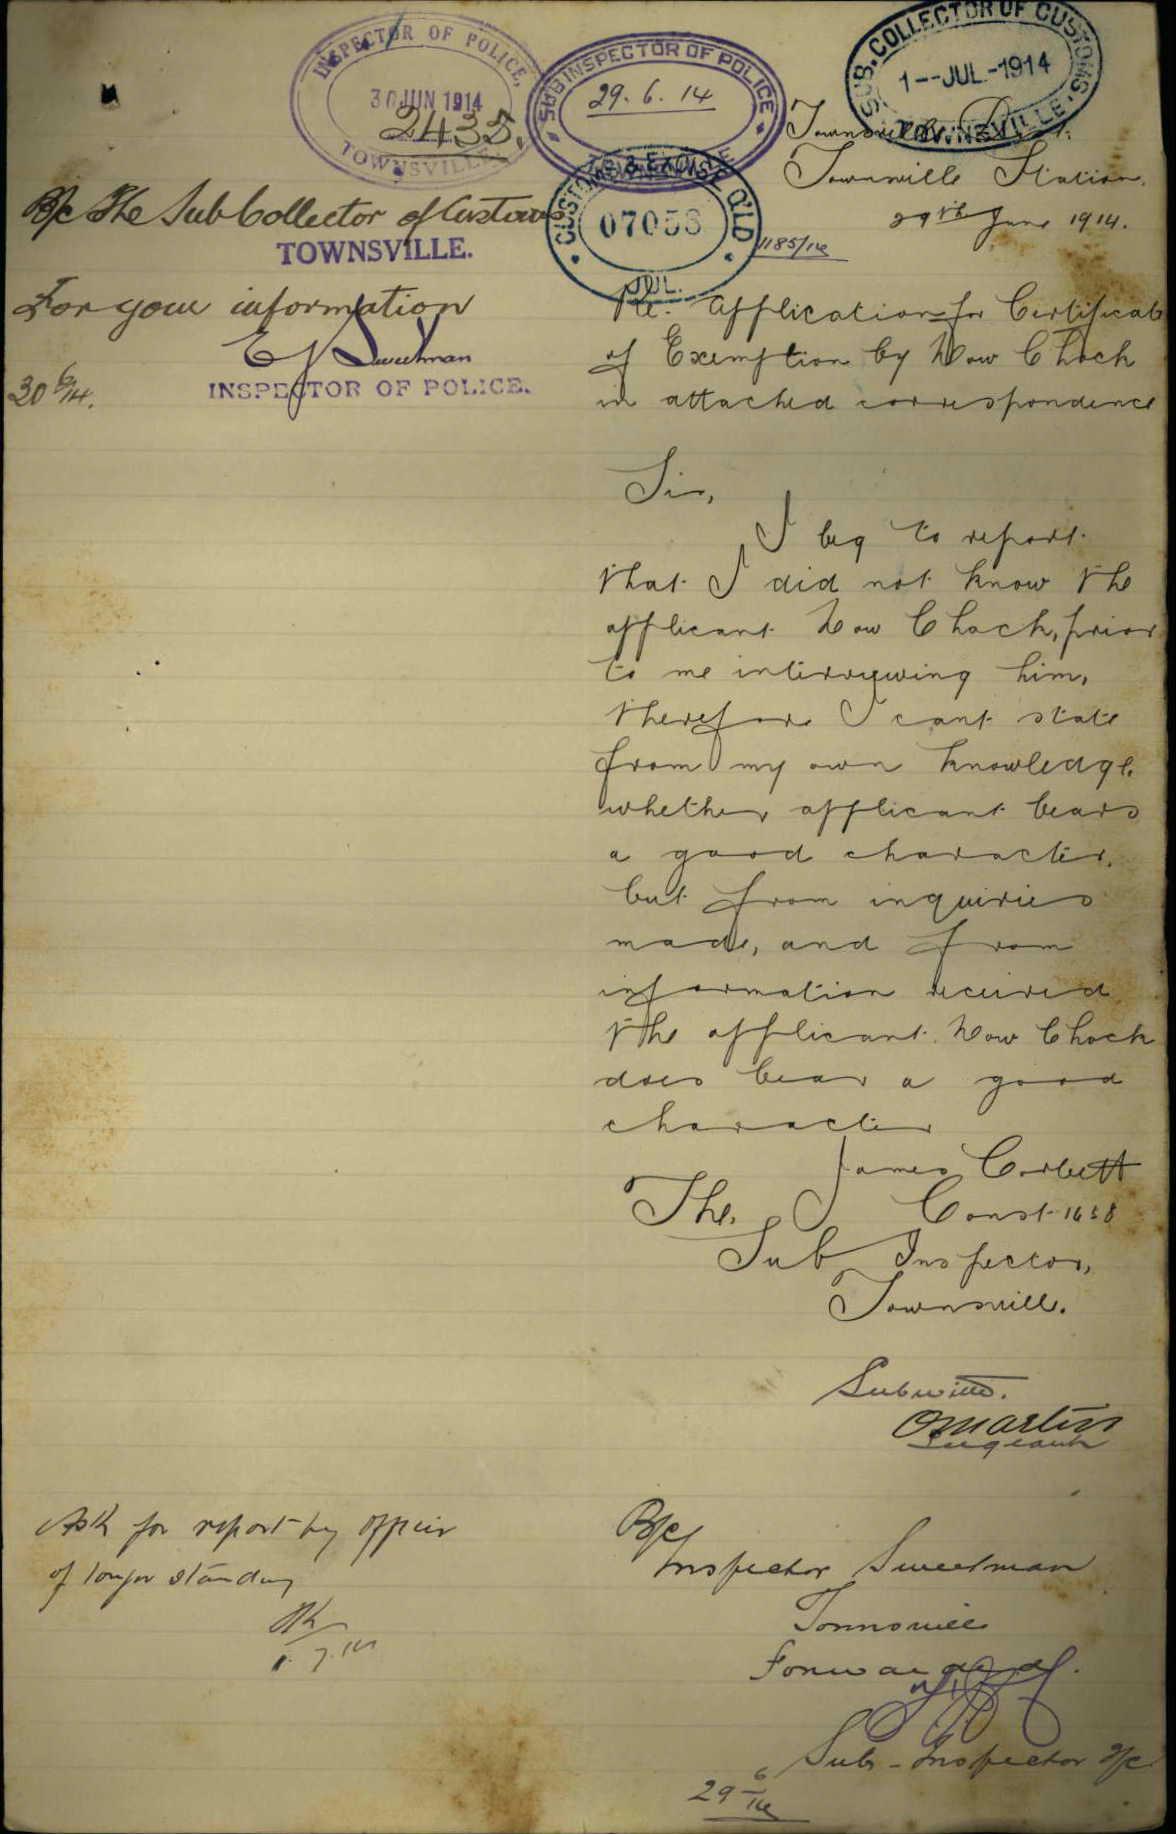 INSPECTOR OF POLICE,
30 JUN 1914
2435.
TOWNSVILLE
SUB INSPECTOR OF POLICE
29. 6. 14
SUB. COLLECTOR OF CUSTOMS.
1--JUL.-1914
TOWNSVILLE
CUSTOMS & EXCISE Q'LD
07058
JUL.
1185/14
Townsville
Townsville Station.
29th June 1914.
B/c The Sub Collector of Customs
TOWNSVILLE.
For your information
Sweetman
INSPECTOR OF POLICE.
30 6/14.
Re. Application for Certificate
of Exemption by How Chock
in attached correspondence
Sir,
I beg to report
that I did not know the
applicant How Chock, prior
to me interviewing him,
therefore I cant state
from my own knowledge,
whether applicant bears
a good character.
but from inquiries
made, and from
information received
the applicant. How Chock
does bear a good
character
James Corbett
Const 1638
The.
Sub Inspector,
Townsville.
Submitted.
Martin
Sergeant
Ask for report by officer
of longer standing
1. 7. 14
B/c
Inspector Sweetman
Townsville
Forwarded.
Sub-Inspector
29 6/14